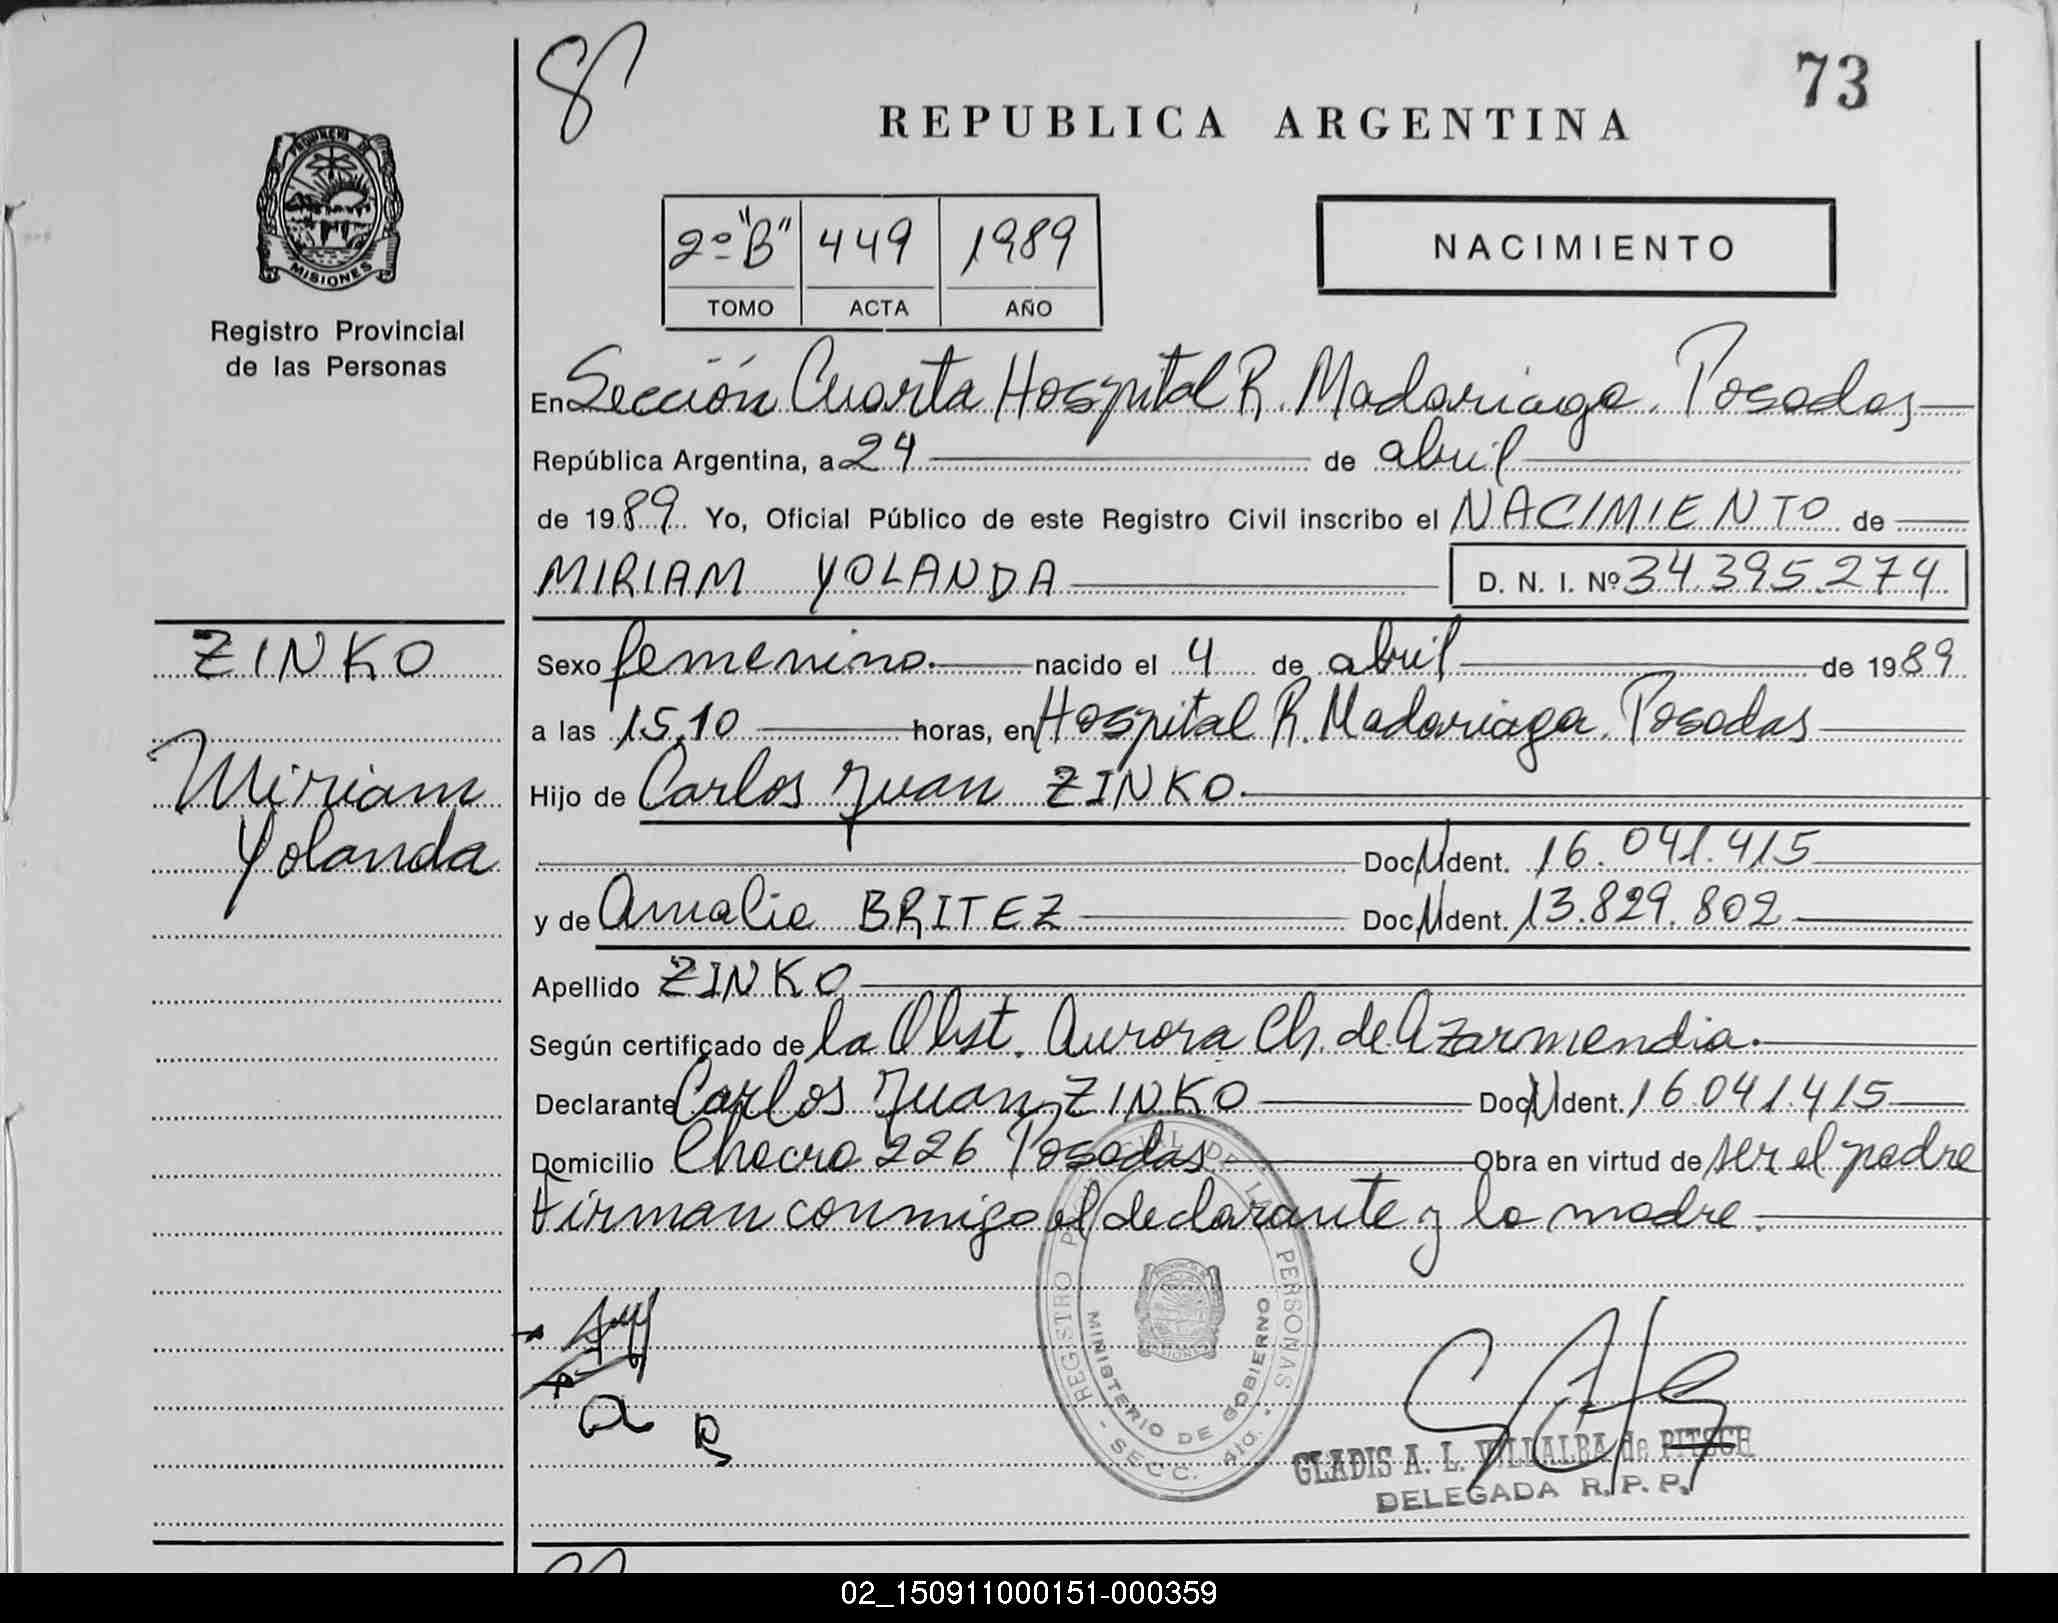 73
REPUBLICA ARGENTINA
PROVINCIA DE
MISIONES
2º "B" 449 1989
TOMO ACTA AÑO
NACIMIENTO
Registro Provincial
de las Personas
En Sección Cuarta Hospital R. Madariaga. Posadas
República Argentina, a 24 de abril
de 1989. Yo, Oficial Público de este Registro Civil inscribo el NACIMIENTO de
MIRIAM YOLANDA D. N. I. Nº 34.395.274
ZINKO
Miriam
Yolanda
Sexo femenino. nacido el 4 de abril de 1989
a las 15,10 horas, en Hospital R. Madariaga. Posadas
Hijo de Carlos Juan ZINKO.
Doc. Ident. 16.041.415
y de Amalia BRITEZ Doc. Ident. 13.829.802
Apellido ZINKO
Según certificado de la Obst. Aurora Ch. de Azarmendia.
Declarante Carlos Juan ZINKO Doc. Ident. 16.041.415
Domicilio Chacra 226 Posadas Obra en virtud de ser el padre
Firman conmigo el declarante y la madre.
REGISTRO PROVINCIAL DE LAS PERSONAS
MINISTERIO DE GOBIERNO
SECC. 4ta.
MISIONES
GLADIS A. L. VILLALBA de PITSCH
DELEGADA R. P. P.
02_150911000151-000359